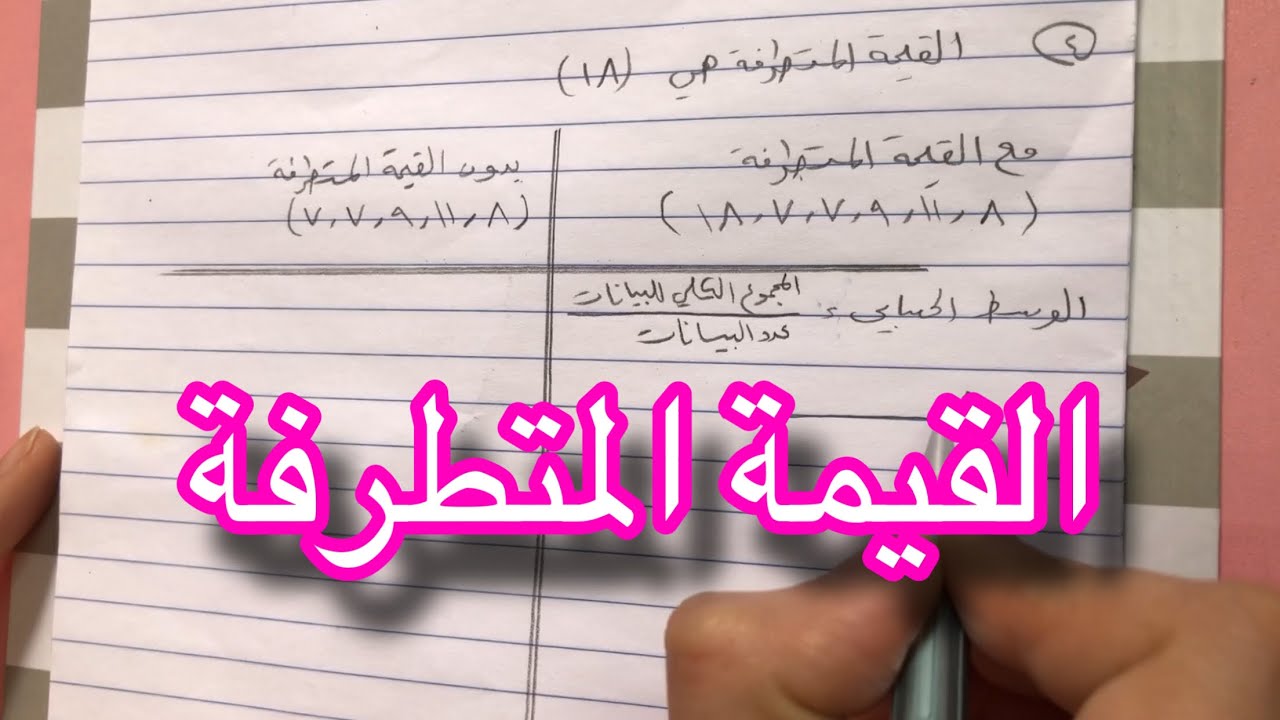 ٤ القيمة المتطرفة هي (١٨)
مع القيمة المتطرفة
(٨، ١١، ٩، ٧، ٧، ١٨)
بدون القيمة المتطرفة
(٨، ١١، ٩، ٧، ٧)
الوسط الحسابي = المجموع الكلي للبيانات
عدد البيانات
القيمة المتطرفة